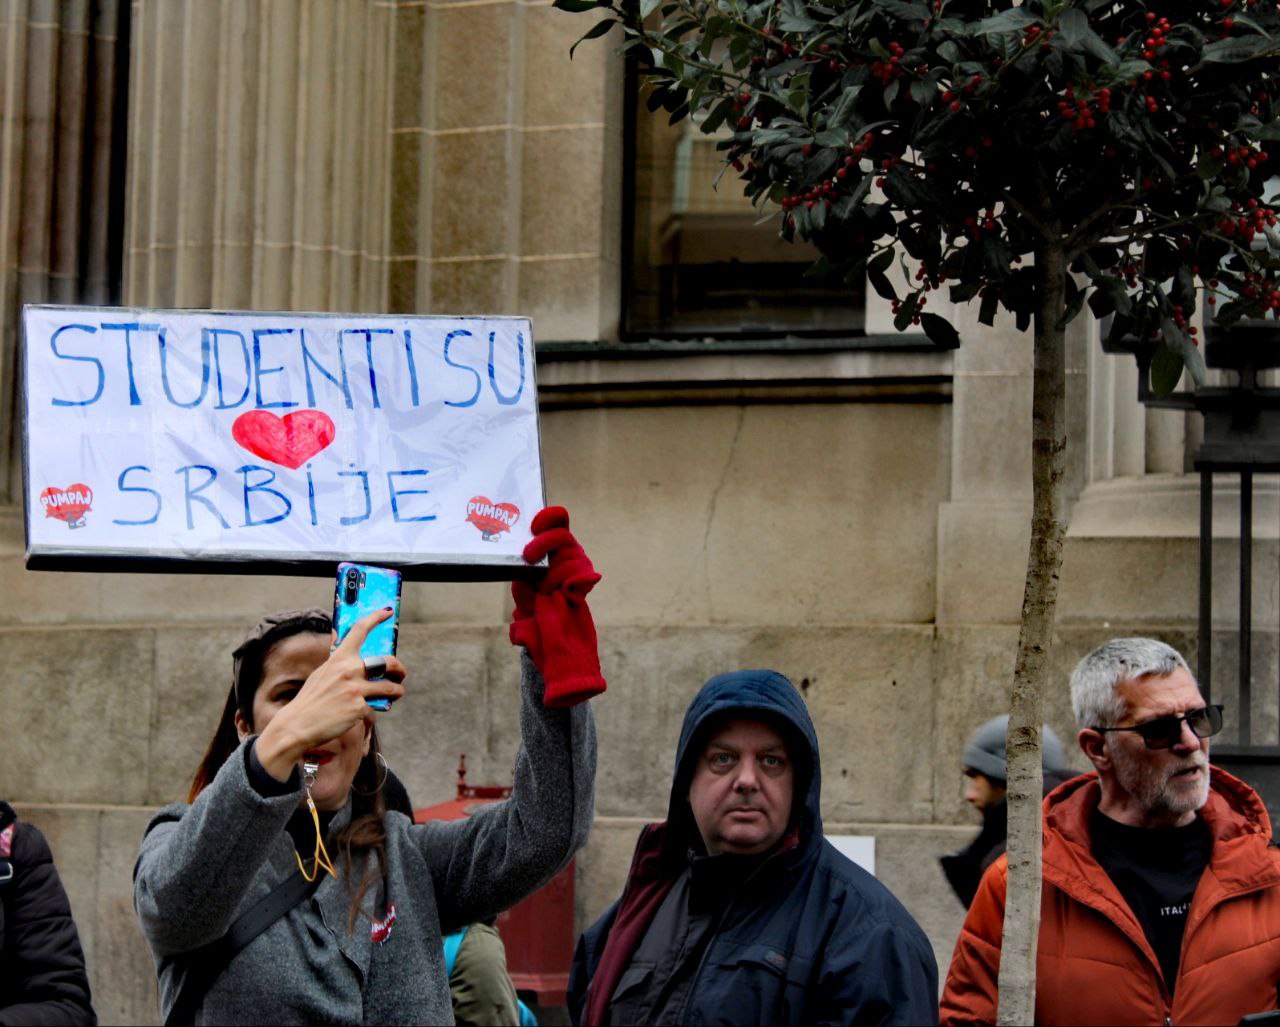 STUDENTI SU
SRBIJE
PUMPAJ
PUMPAJ